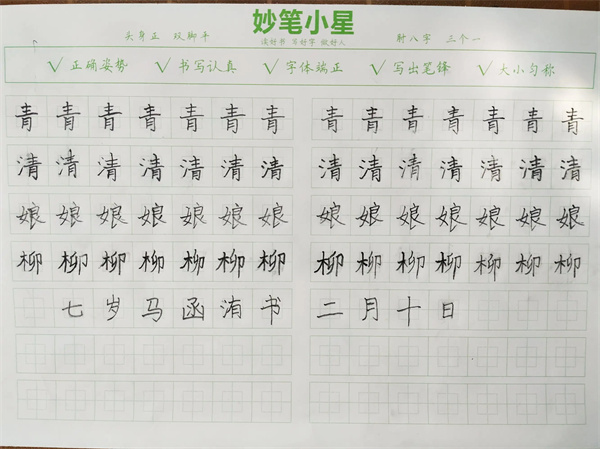 妙笔小星
头身正 双脚平
读好书 写好字 做好人
肘八字 三个一
√ 正确姿势 √ 书写认真 √ 字体端正 √ 写出笔锋 √ 大小匀称
青 青 青 青 青 青 青 青 青 青 青 青 青 青
清 清 清 清 清 清 清 清 清 清 清 清 清 清
娘 娘 娘 娘 娘 娘 娘 娘 娘 娘 娘 娘 娘 娘
柳 柳 柳 柳 柳 柳 柳 柳 柳 柳 柳 柳 柳 柳
七 岁 马 函 洧 书 二 月 十 日